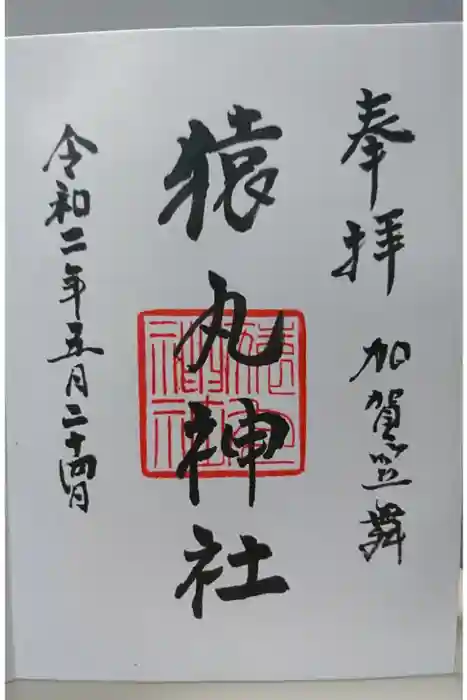 奉拝 加賀笠舞
猿丸神社
令和二年五月二十四日